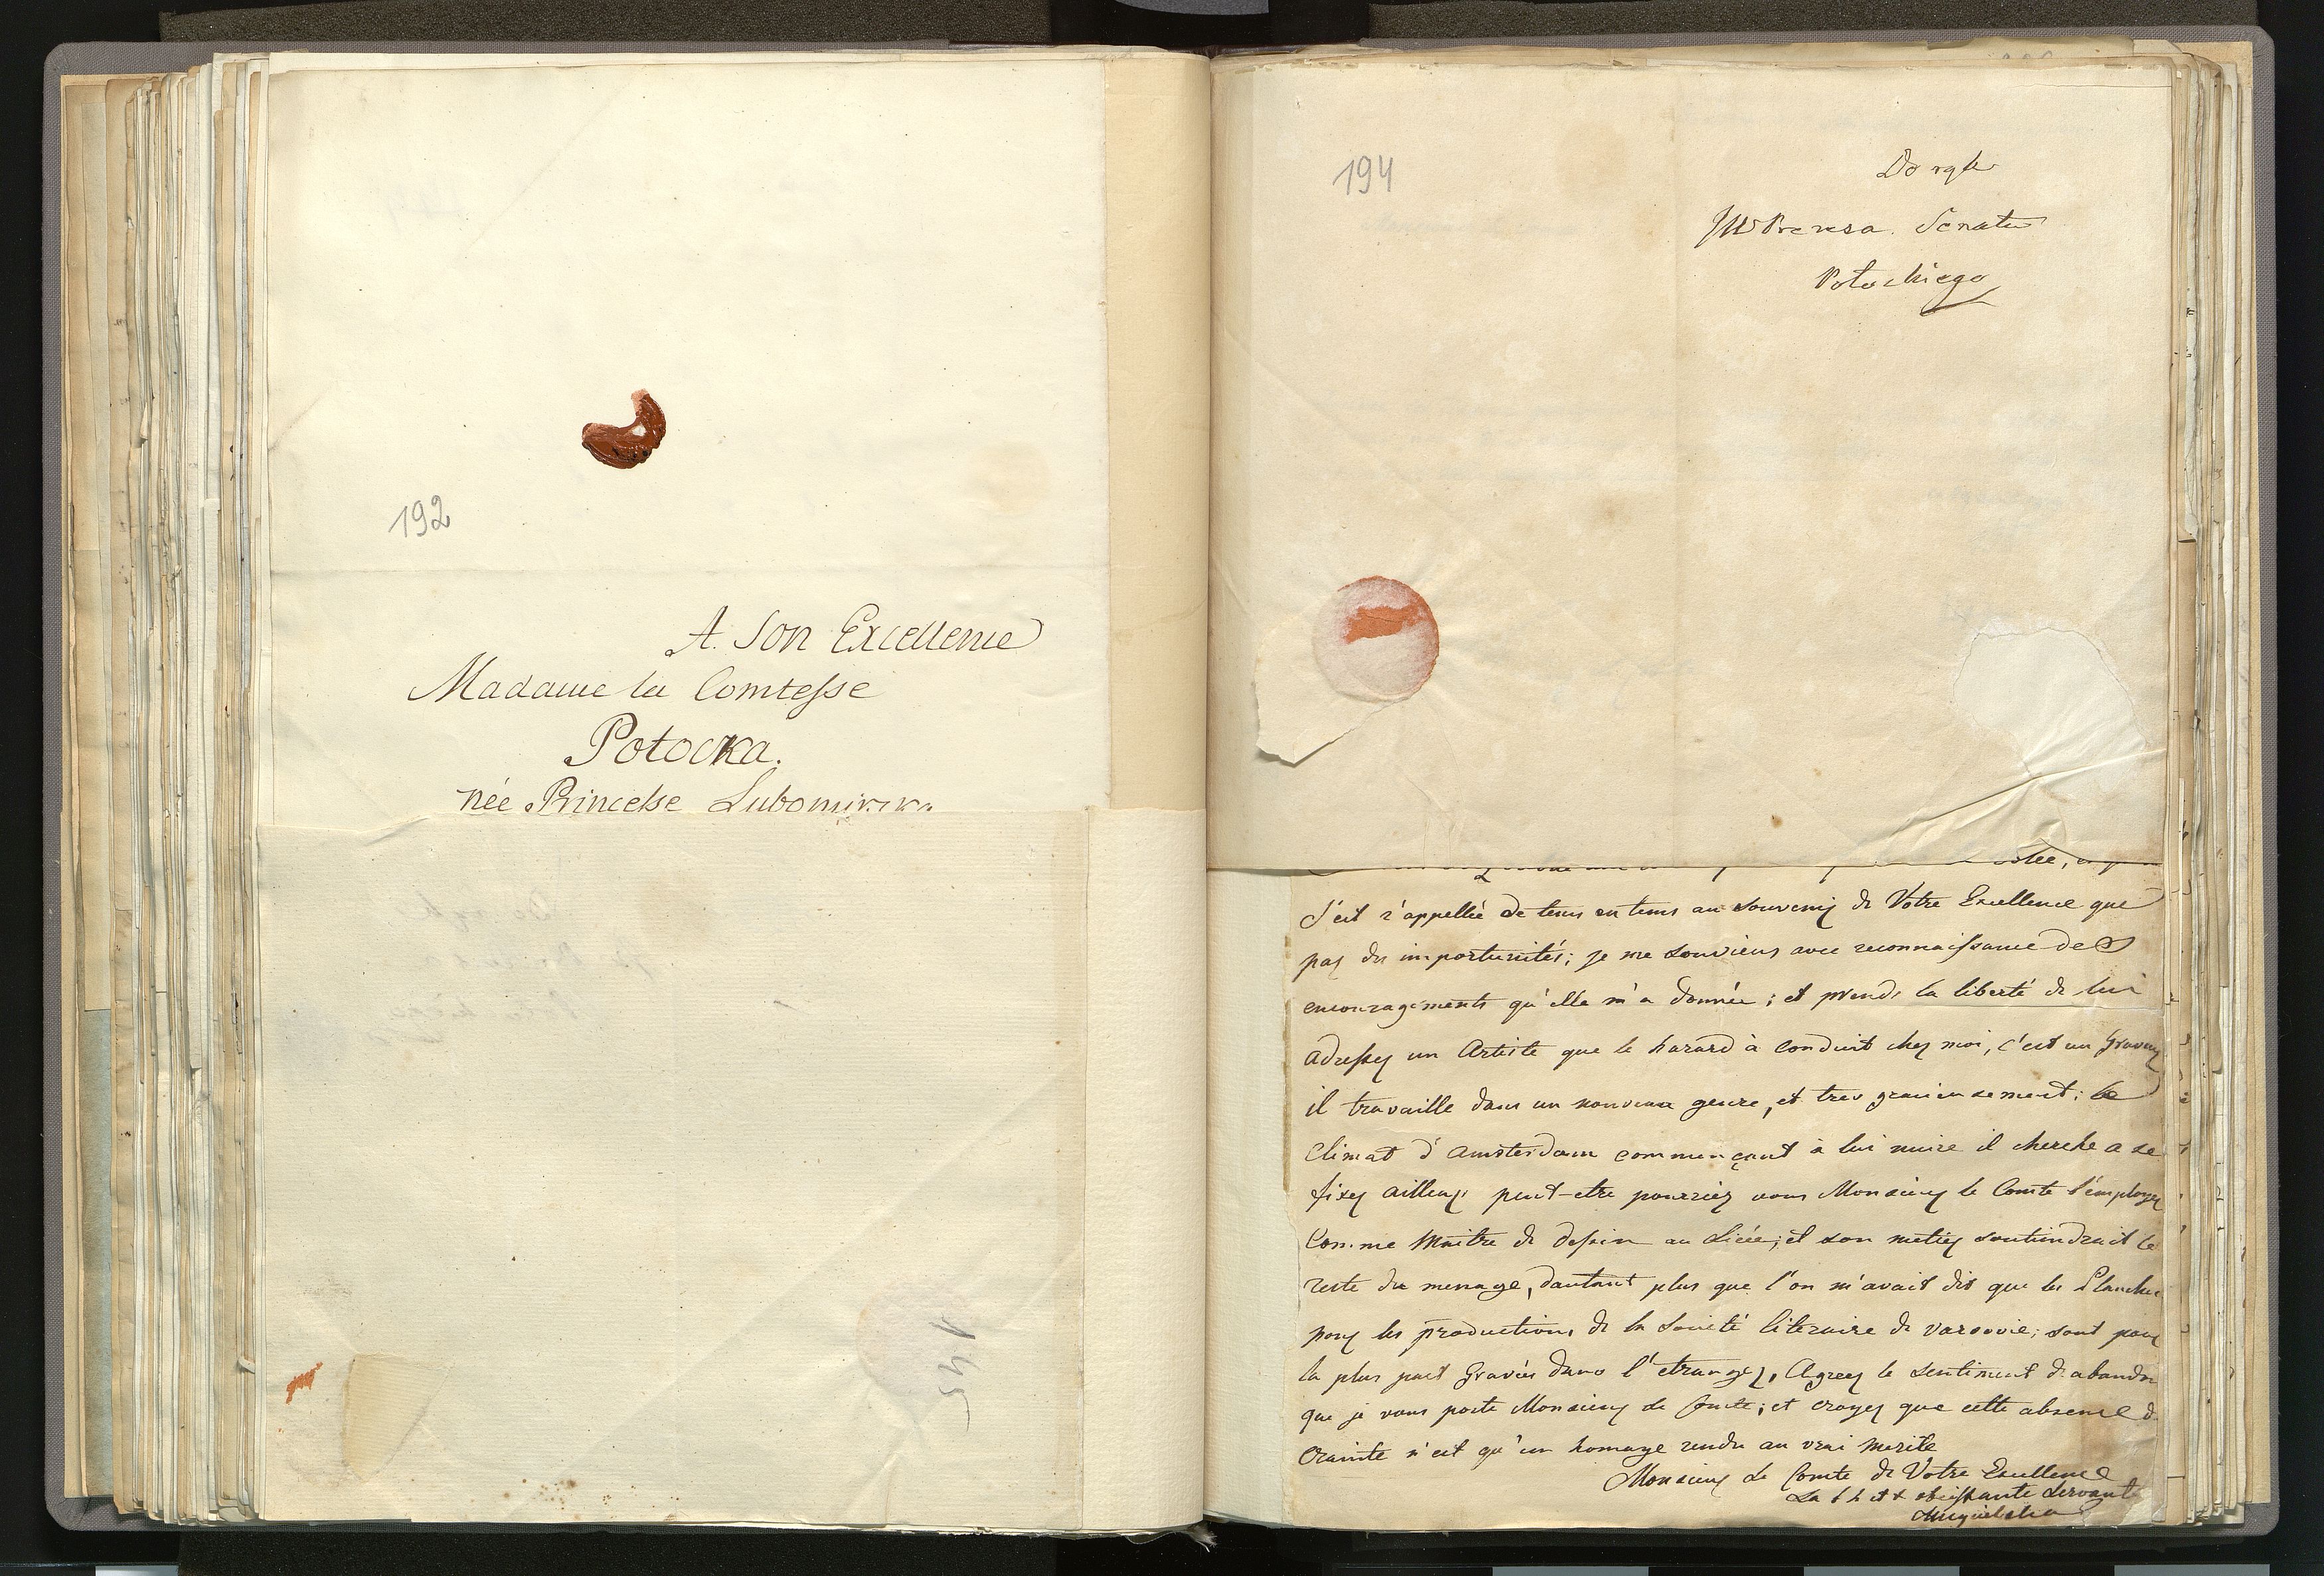 192
A Son Excellence
Madame la Comtesse
Potocka.
née Princesse Lubomirska
194
Do rąk
JW Prezesa Senatu
Potockiego
S'est r'appellée de tems en tems au souvenir de Votre Excellence que
par des importunités; je me souviens avec reconnaissance des
encouragements qu'elle m'a donnée; et prends la liberté de lui
adresser un Artiste que le hazard à conduit chez moi, c'est un Graveur
il travaille dans un nouveau genre, et tres gracieusement; le
climat d'Amsterdam commençant à lui nuire il cherche a se
fixer ailleurs peut-etre pourriez vous Monsieur le Comte l'employer
comme Maitre de dessin au Licée; et son metier soutiendrait le
reste du menage, dautant plus que l'on m'avait dit que les Planches
pour les productions de la Societé literaire de Varsovie; sont pour
la plus part Gravées dans l'etranger, Agreez le sentiment
que je vous porte Monsieur le Comte; et croyez que cette absence de
crainte n'est qu'un homage rendu au vrai merite
Monsieur Le Comte de Votre Excellence
La obeissante Servante